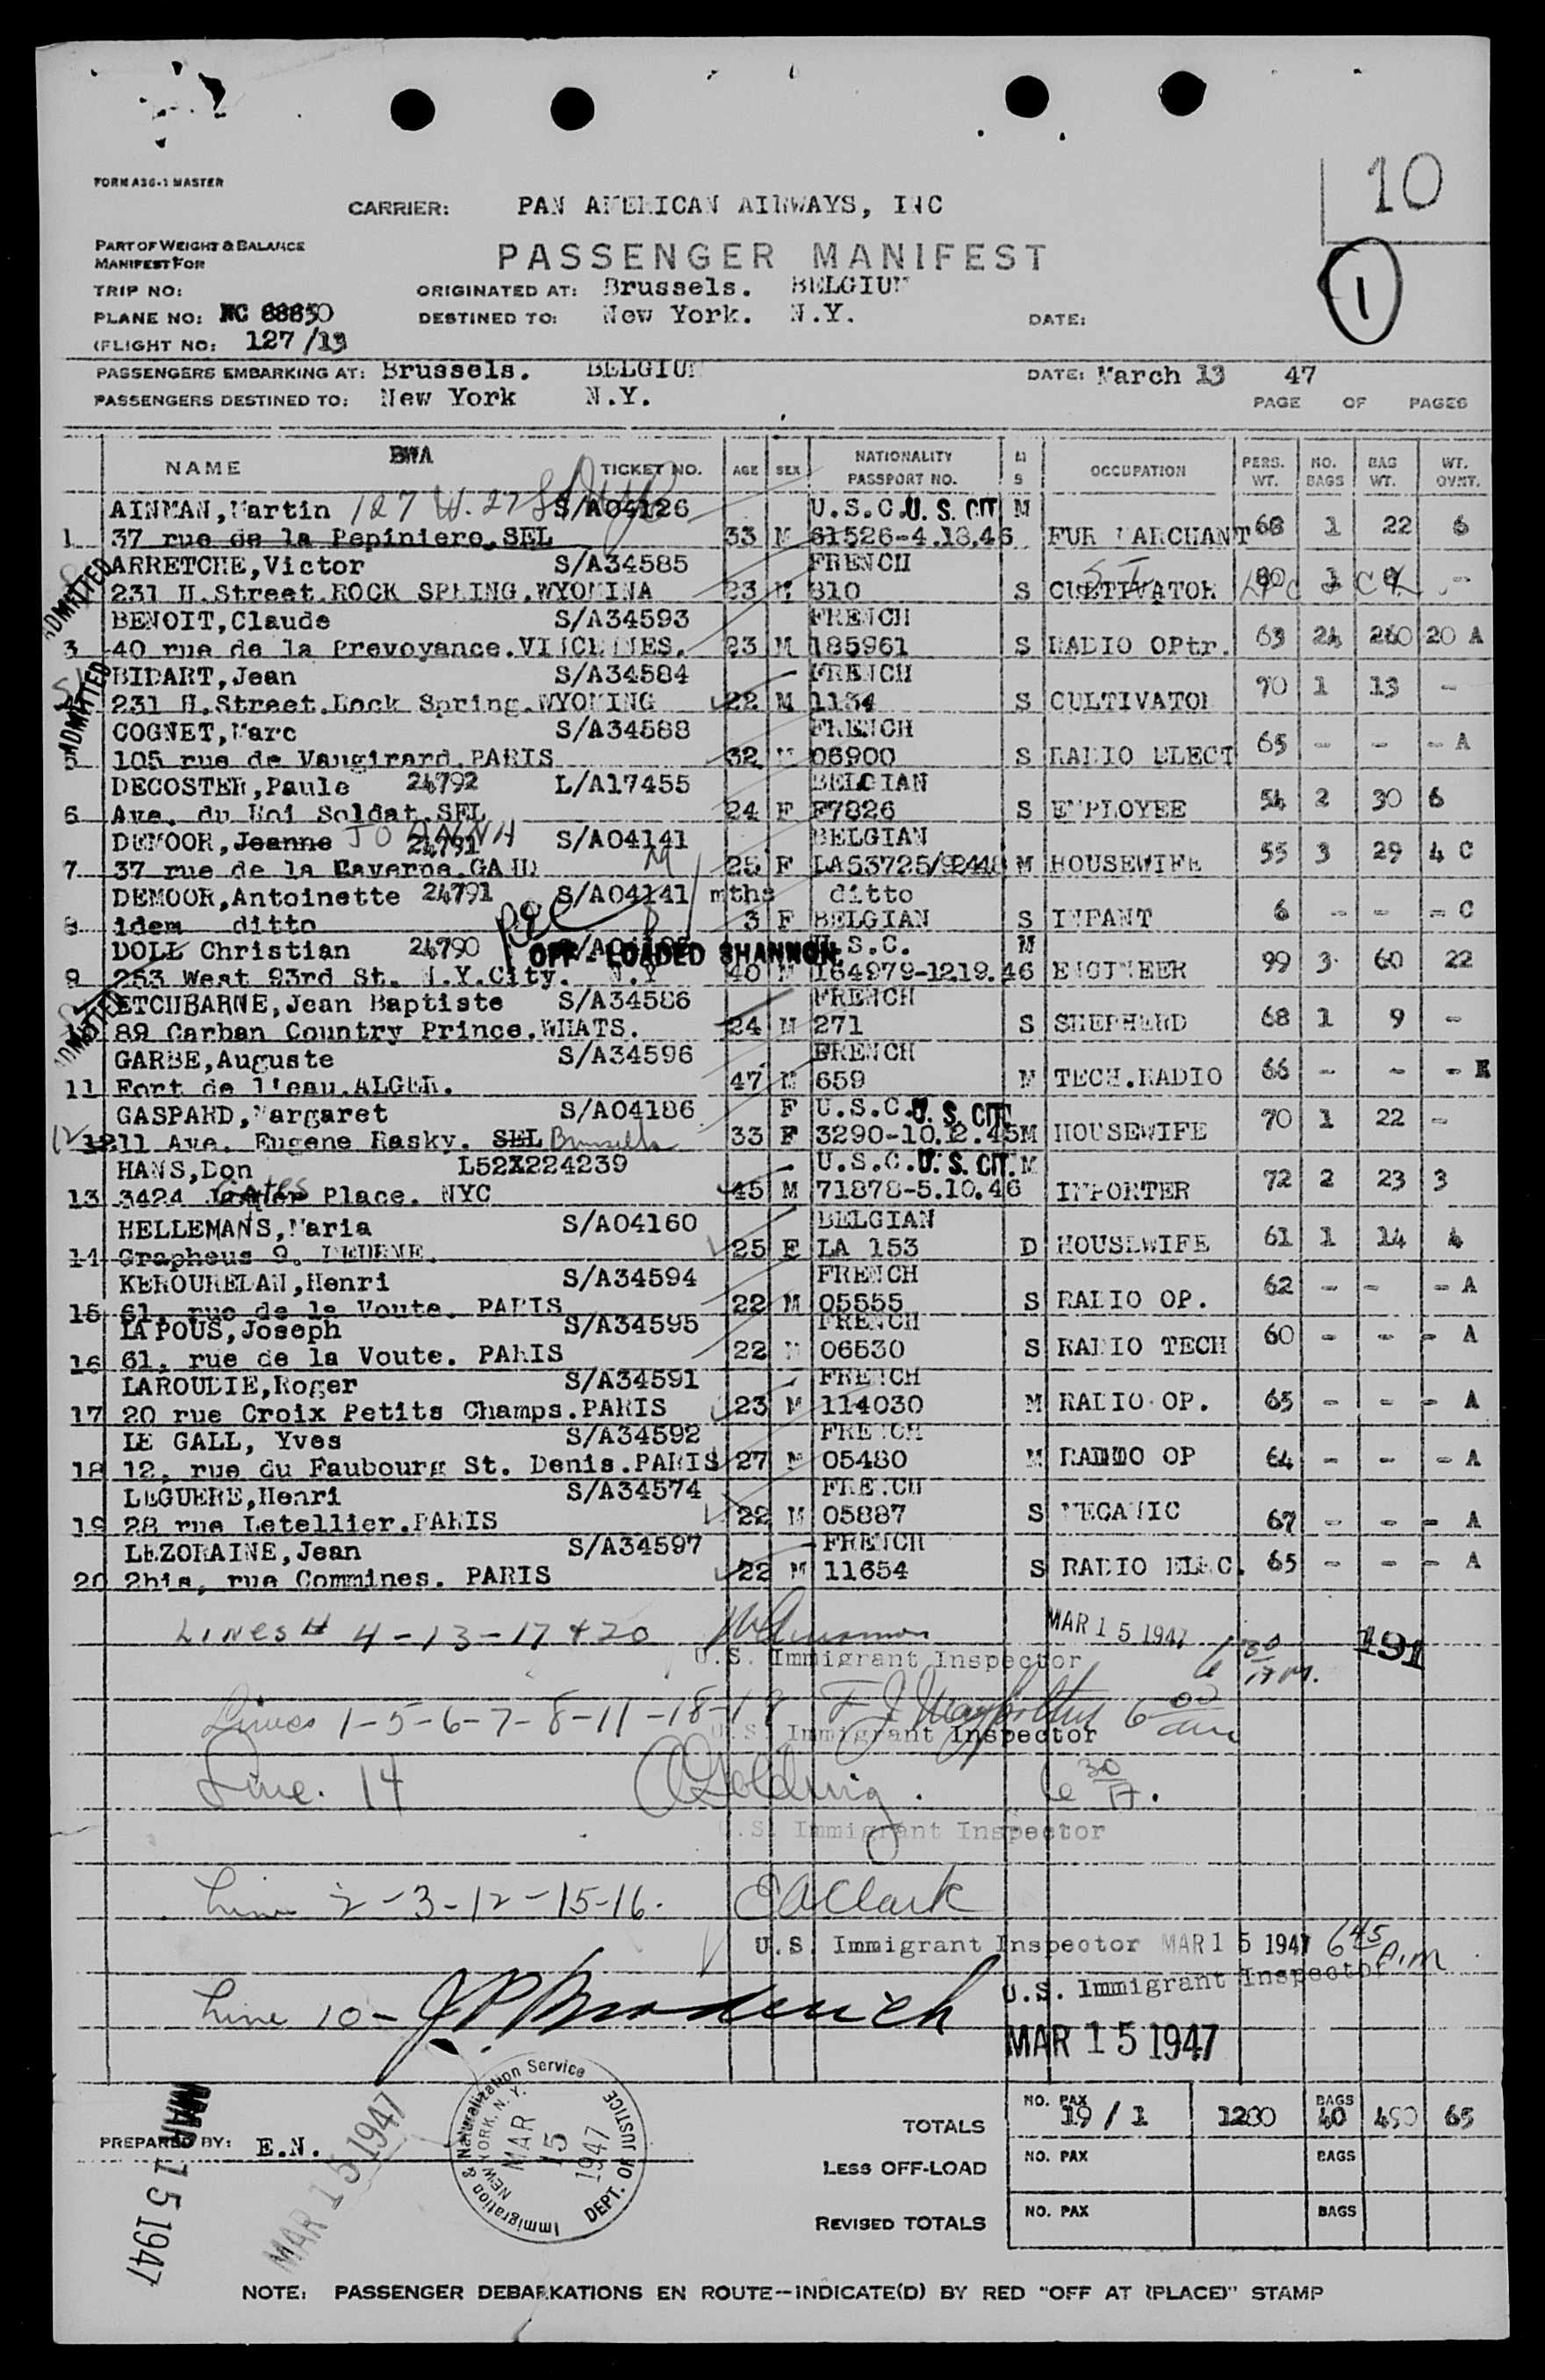 10
FORM A36-1 MASTER
CARRIER: PAN AMERICAN AIRWAYS, INC
PART OF WEIGHT & BALANCE
MANIFEST FOR
PASSENGER MANIFEST
1
TRIP NO: ORIGINATED AT: Brussels. BELGIUM
PLANE NO: NC 88850 DESTINED TO: New York. N.Y. DATE:
(FLIGHT NO: 127/13
PASSENGERS EMBARKING AT: Brussels. BELGIUM DATE: March 13 47
PASSENGERS DESTINED TO: New York N.Y. PAGE OF PAGES
NAME BWA TICKET NO. AGE SEX NATIONALITY PASSPORT NO. M S OCCUPATION PERS. WT. NO. BAGS BAG WT. WT. OVNT.
AINMAN,Martin 127 W. 27 S/A04126 U.S.C. U. S. CIT M
1 37 rue de la Pepiniere.SEL 33 M 61526-4.18.46 FUR MARCHANT 68 1 22 6
ADMITTED
ARRETCHE,Victor S/A34585 FRENCH
231 H.Street.ROCK SPRING.WYOMINA 23 M 810 S CULTIVATOR 80 1 -
BENOIT,Claude S/A34593 FRENCH
3 40 rue de la Prevoyance.VINCENNES. 23 M 185961 S RADIO OPtr. 63 24 260 20 A
ADMITTED
BIDART,Jean S/A34584 FRENCH
231 H.Street.Rock Spring.WYOMING 22 M 1134 S CULTIVATOR 70 1 13 -
COGNET,Marc S/A34588 FRENCH
5 105 rue de Vaugirard.PARIS 32 M 06900 S RADIO ELECT 65 - - - A
DECOSTER,Paule 24792 L/A17455 BELGIAN
6 Ave. du Roi Soldat.SEL 24 F F7826 S EMPLOYEE 54 2 30 6
DEMOOR,Jeanne JOHANNA 24791 S/A04141 BELGIAN
7 37 rue de la Caverne.GAND M 25 F LA53725/92448 M HOUSEWIFE 55 3 29 4 C
DEMOOR,Antoinette 24791 S/A04141 mths ditto
8 idem ditto 3 F BELGIAN S INFANT 6 - - - C
DOLL Christian 24790 OFF-LOADED SHANNON. U.S.C. M
9 253 West 93rd St. N.Y.City. N.Y 40 M 164979-1219.46 ENGINEER 99 3 60 22
ADMITTED
ETCHBARNE,Jean Baptiste S/A34586 FRENCH
10 89 Carban Country Prince.WHATS. 24 M 271 S SHEPHERD 68 1 9 -
GARBE,Auguste S/A34596 FRENCH
11 Fort de l'eau.ALGER. 47 M 659 M TECH.RADIO 66 - - - R
GASPARD,Margaret S/A04186 F U.S.C. U. S. CIT.
12 1211 Ave. Eugene Rasky. SEL Brussels 33 F 3290-10.12.45 M HOUSEWIFE 70 1 22 -
HANS,Don L52X224239 U.S.C. U. S. CIT. M
13 3424 Gates Place. NYC 45 M 71878-5.10.46 IMPORTER 72 2 23 3
HELLEMANS,Maria S/A04160 BELGIAN
14 Grapheus 9. DEURNE. 25 F LA 153 D HOUSEWIFE 61 1 14 4
KEROURELAN,Henri S/A34594 FRENCH
15 61, rue de la Voute. PARIS 22 M 05555 S RADIO OP. 62 - - - A
LA POUS,Joseph S/A34595 FRENCH
16 61, rue de la Voute. PARIS 22 M 06530 S RADIO TECH 60 - - - A
LAROUDIE,Roger S/A34591 FRENCH
17 20 rue Croix Petits Champs.PARIS 23 M 114030 M RADIO OP. 65 - - - A
LE GALL, Yves S/A34592 FRENCH
18 12, rue du Faubourg St. Denis.PARIS 27 M 05480 M RADIO OP 64 - - - A
LEGUERE,Henri S/A34574 FRENCH
19 28 rue Letellier.PARIS 22 M 05887 S MECANIC 67 - - - A
LEZORAINE,Jean S/A34597 FRENCH
20 2bis, rue Commines. PARIS 22 M 11654 S RADIO ELEC. 65 - - - A
LINES # 4-13-17 & 20 MAR 15 1947 6 30 A.M. 191
U.S. Immigrant Inspector
Lines 1-5-6-7-8-11-18-19 6 00 am
U.S. Immigrant Inspector
Line. 14 Golding. 6 30 A.
U.S. Immigrant Inspector
Line 2-3-12-15-16. E A Clark
U.S. Immigrant Inspector MAR 15 1947 6 45 A.M
U.S. Immigrant Inspector
Line 10- J P Broderick
MAR 15 1947
Immigration & Naturalization Service
NEW YORK, N. Y.
MAR 15 1947
DEPT. OF JUSTICE
TOTALS NO. PAX 19/1 1280 BAGS 40 490 65
PREPARED BY: E.N.
LESS OFF-LOAD NO. PAX BAGS
REVISED TOTALS NO. PAX BAGS
MAR 15 1947
MAR 15 1947
NOTE: PASSENGER DEBARKATIONS EN ROUTE--INDICATE(D) BY RED "OFF AT (PLACE)" STAMP